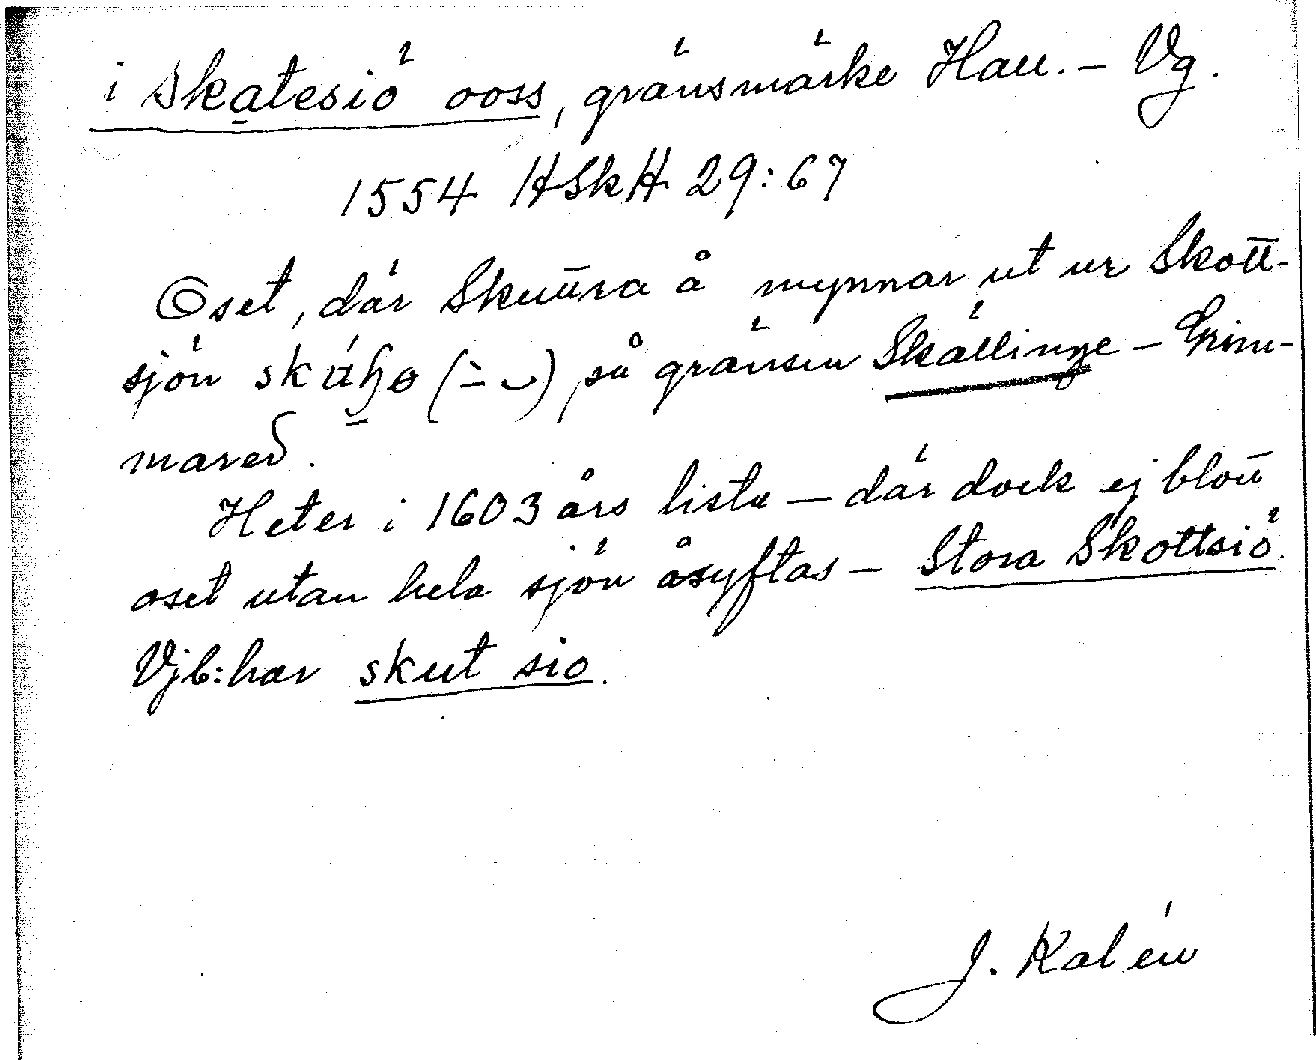 i Skatesiö ooss, gränsmärke Hall. – Vg.
1554 HSkH 29:67
Oset, där Skuttra å mynnar ut ur Skott-
sjön (∸ ⌣) på gränsen Skällinge – Grim-
mared.
Heter i 1603 års lista – där dock ej blott
oset utan hela sjön åsyftas – Stora Skottsiö.
Vjb: har skut sio.
J. Kalén